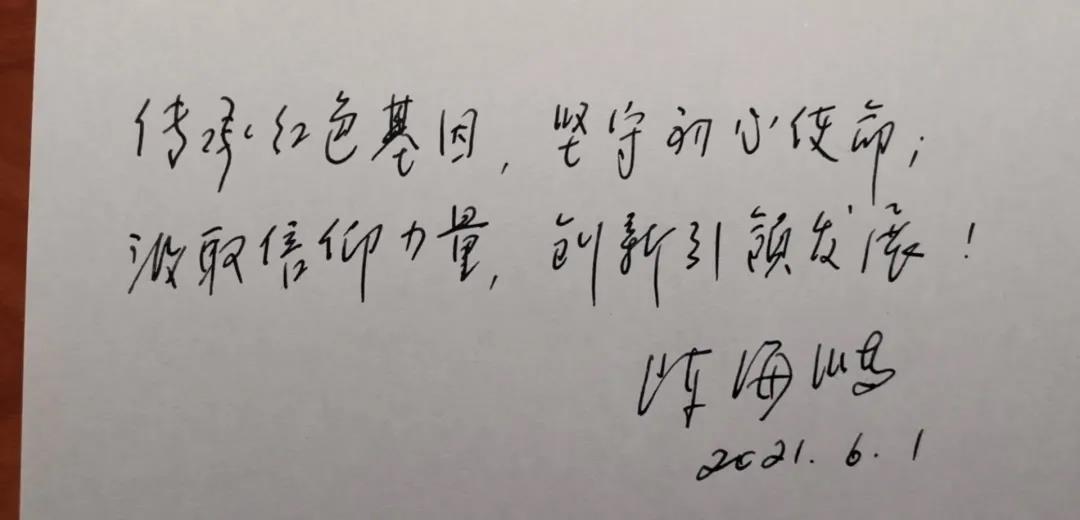 传承红色基因，坚守初心使命；
汲取信仰力量，创新引领发展！
陈海鹏
2021.6.1